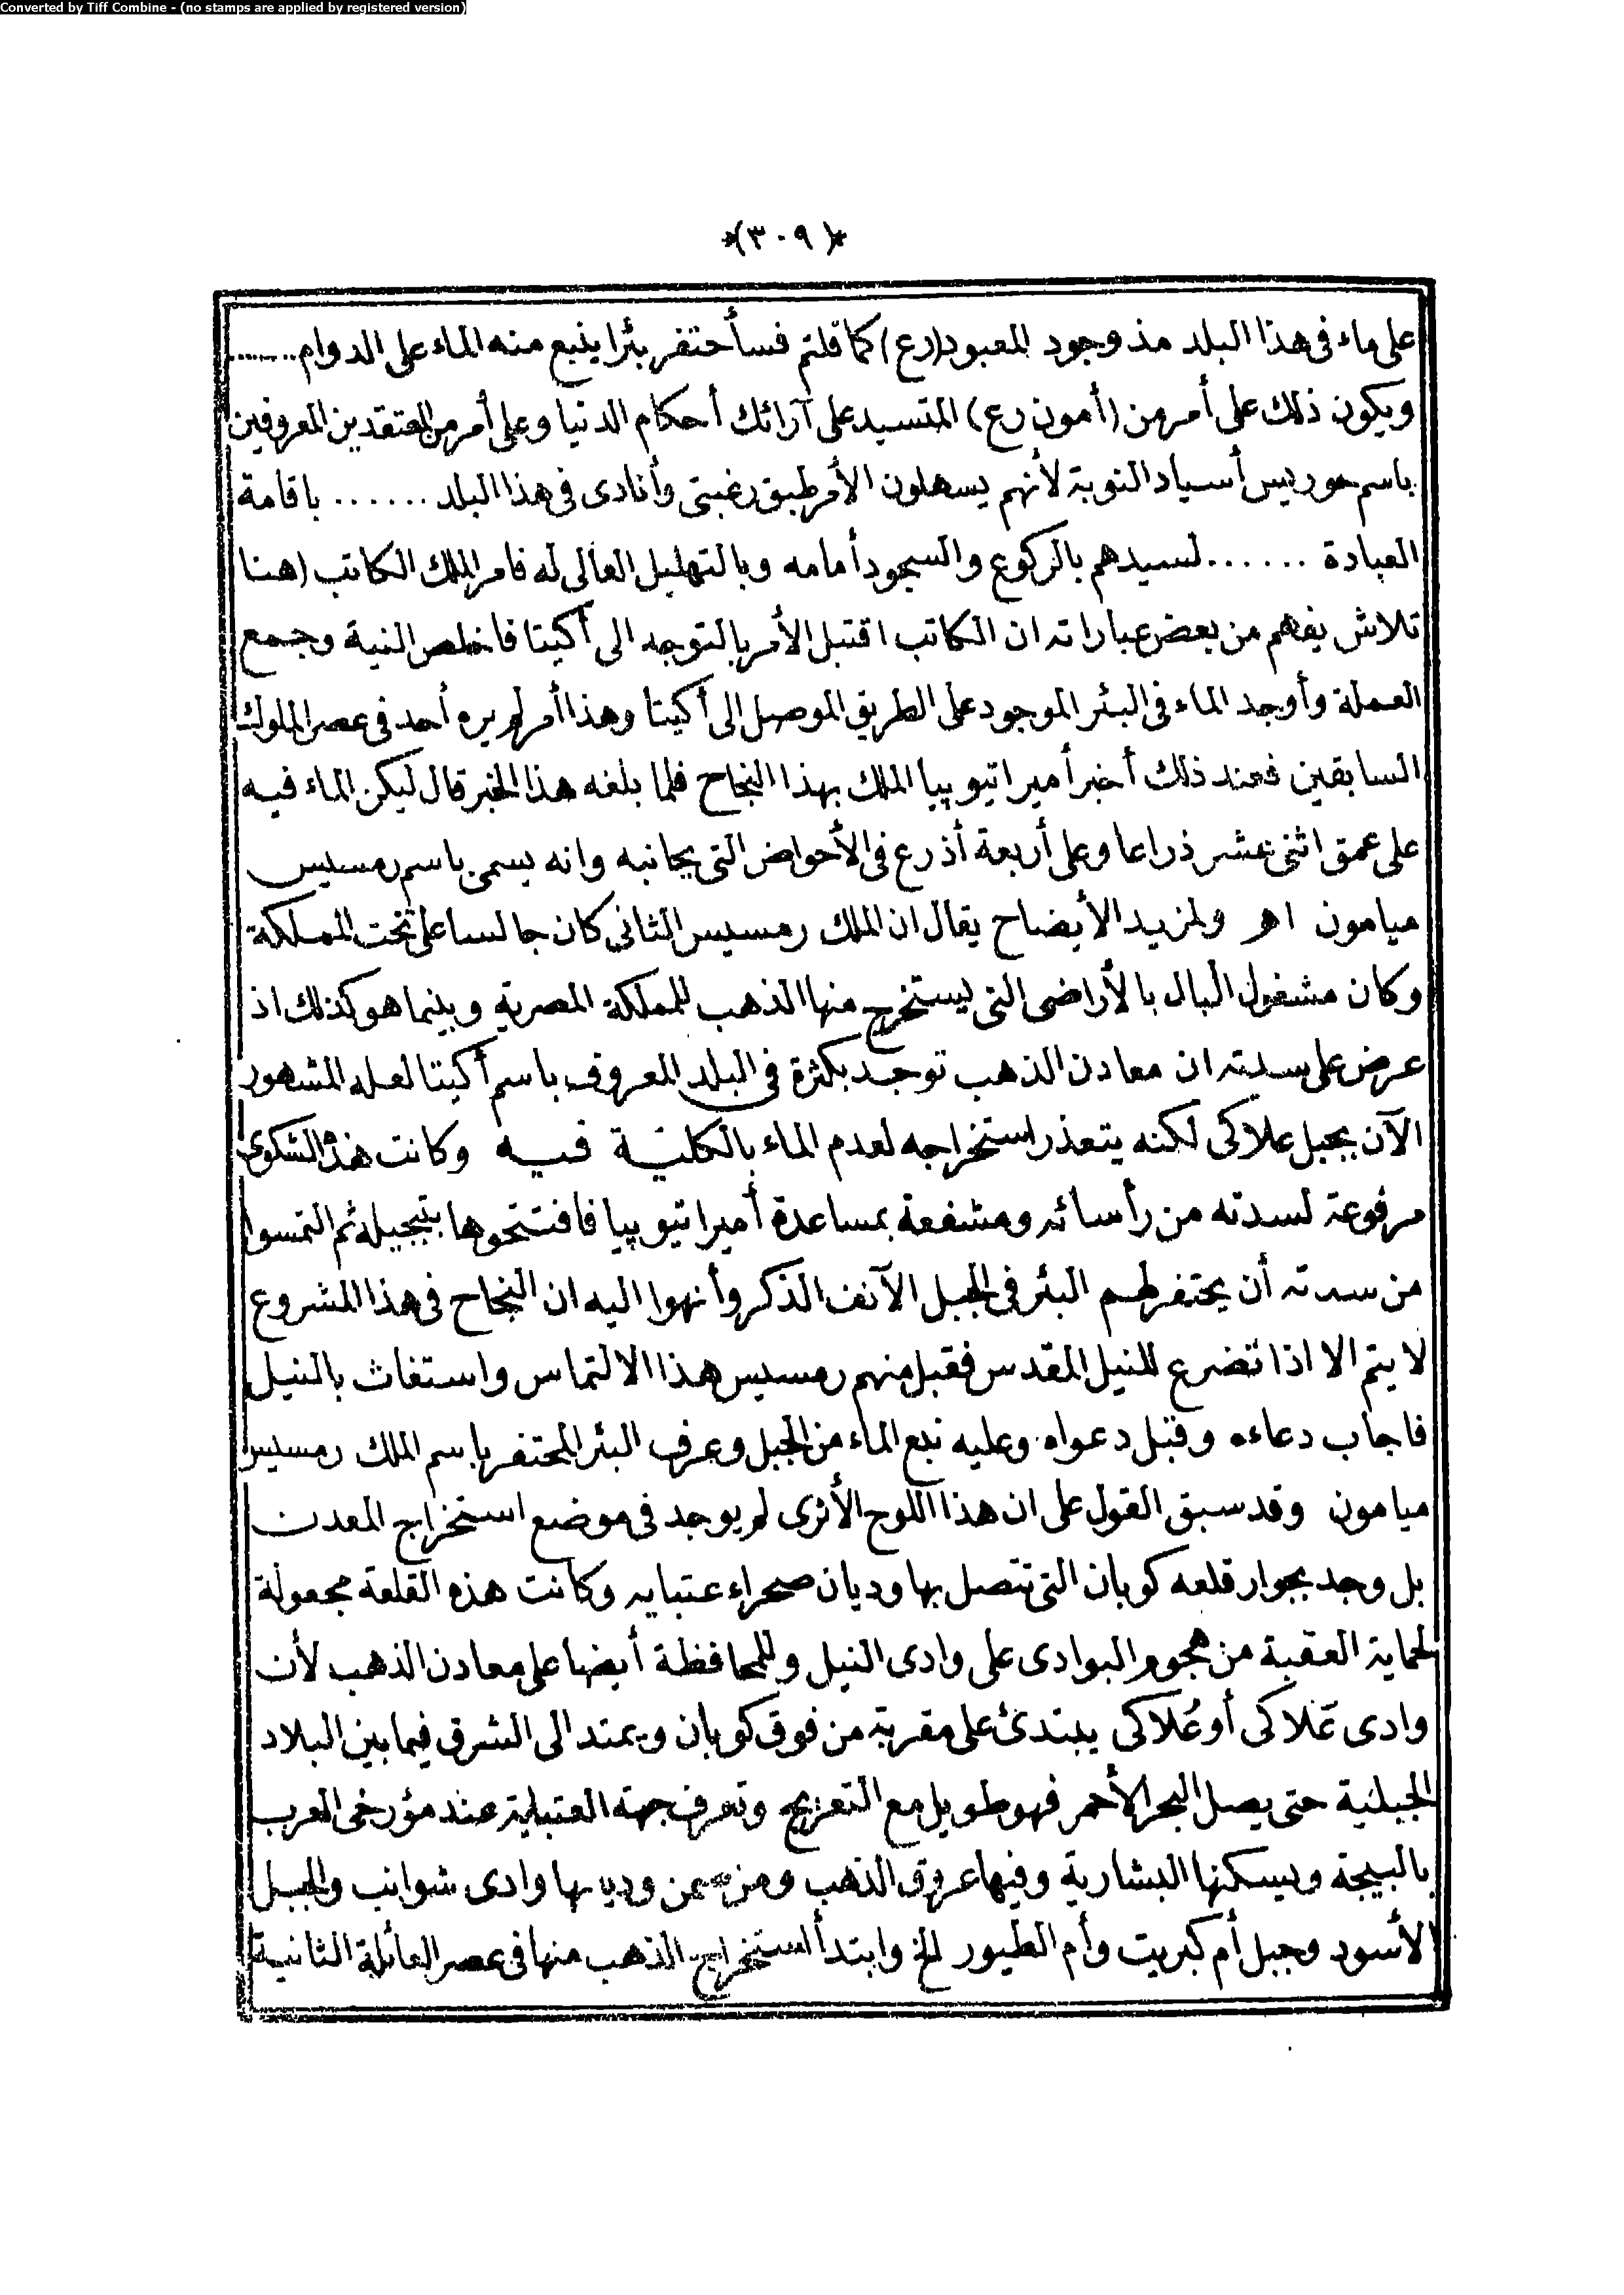 Converted by Tiff Combine - (no stamps are applied by registered version)
*(٣٠٩)*
على ماء فى هذا البلد مذ وجود المعبود (رع) كما قلتم فسأحتفر بئرا ينبع منه الماء على الدوام........
ويكون ذلك على أمر من (أمون رع) المتسيد على آرائك أحكام الدنيا وعلى أمر من المعتقدين المعروفين
باسم حوريس أسياد النوبة لأنهم يسهلون الأمر طبق رغبتى وأنادى فى هذا البلد ...... باقامة
العبادة ...... لسيدهم بالركوع والسجود أمامه وبالتهليل العالى له فامر الملك الكاتب (هنا
تلاش يفهم من بعض عباراته ان الكاتب اقتبل الأمر بالتوجه الى أكيتا فاخلص النية وجمع
العملة وأوجد الماء فى البئر الموجود على الطريق الموصل الى أكيتا وهذا أمر لم يره أحد فى عصر الملوك
السابقين فعند ذلك أخبر أمير اتيوپيا الملك بهذا النجاح فلما بلغه هذا الخبر قال ليكن الماء فيه
على عمق اثنى عشر ذراعا وعلى أربعة أذرع فى الأحواض التى بجانبه وانه يسمى باسم رمسيس
ميامون اهـ ولمزيد الأيضاح يقال ان الملك رمسيس الثانى كان جالسا على تخت المملكة
وكان مشغول البال بالأراضى التى يستخرج منها الذهب للمملكة المصرية وبينما هو كذلك اذ
عرض على سدته ان معادن الذهب توجد بكثرة فى البلد المعروف باسم أكيتا لعله المشهور
الآن بجبل علاكى لكنه يتعذر استخراجه لعدم الماء بالكلية فيه وكانت هذه الشكوى
مرفوعة لسدته من رأسائه ومشفعة بمساعدة أمير اتيوپيا فافتتحوها بتبجيله ثم التمسوا
من سدته أن يحتفر لهم البئر فى الجبل الآنف الذكر وأنهوا اليه ان النجاح فى هذا المشروع
لا يتم الا اذا تضرع للنيل المقدس فقبل منهم رمسيس هذا الالتماس واستغاث بالنيل
فاجاب دعاءه وقبل دعواه وعليه نبع الماء من الجبل وعرف البئر المحتفر باسم الملك رمسيس
ميامون وقد سبق القول على ان هذا اللوح الأثرى لم يوجد فى موضع استخراج المعدن
بل وجد بجوار قلعه كوبان التى تتصل بها وديان صحراء عتبايه وكانت هذه القلعة مجعولة
لحماية العقبة من هجوم البوادى على وادى النيل وللمحافظة أيضا على معادن الذهب لأن
وادى عَلاكى أو عُلاكى يبتدئ على مقربة من فوق كوبان ويمتد الى الشرق فيما بين البلاد
الجبلية حتى يصل البحر الأحمر فهو طويل مع التعريج وتعرف جهة العتباية عند مؤرخى العرب
بالبيجة ويسكنها البشارية وفيها عروق الذهب ومن وديانها وادى شوانب والجبل
الأسود وجبل أم كبريت وأم الطيور الخ وابتدأ استخراج الذهب منها فى عصر العائلة الثانية